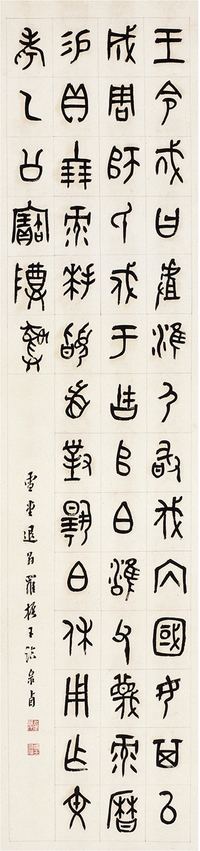 王令戎曰𠭯淮夷敢伐內國女其以
成周師氏戍于古𠂤白雝父蔑彔曆
易貝十朋彔拜䭫首對揚白休用乍文
考乙公寶尊彝
雪堂退羅振玉臨彔卣